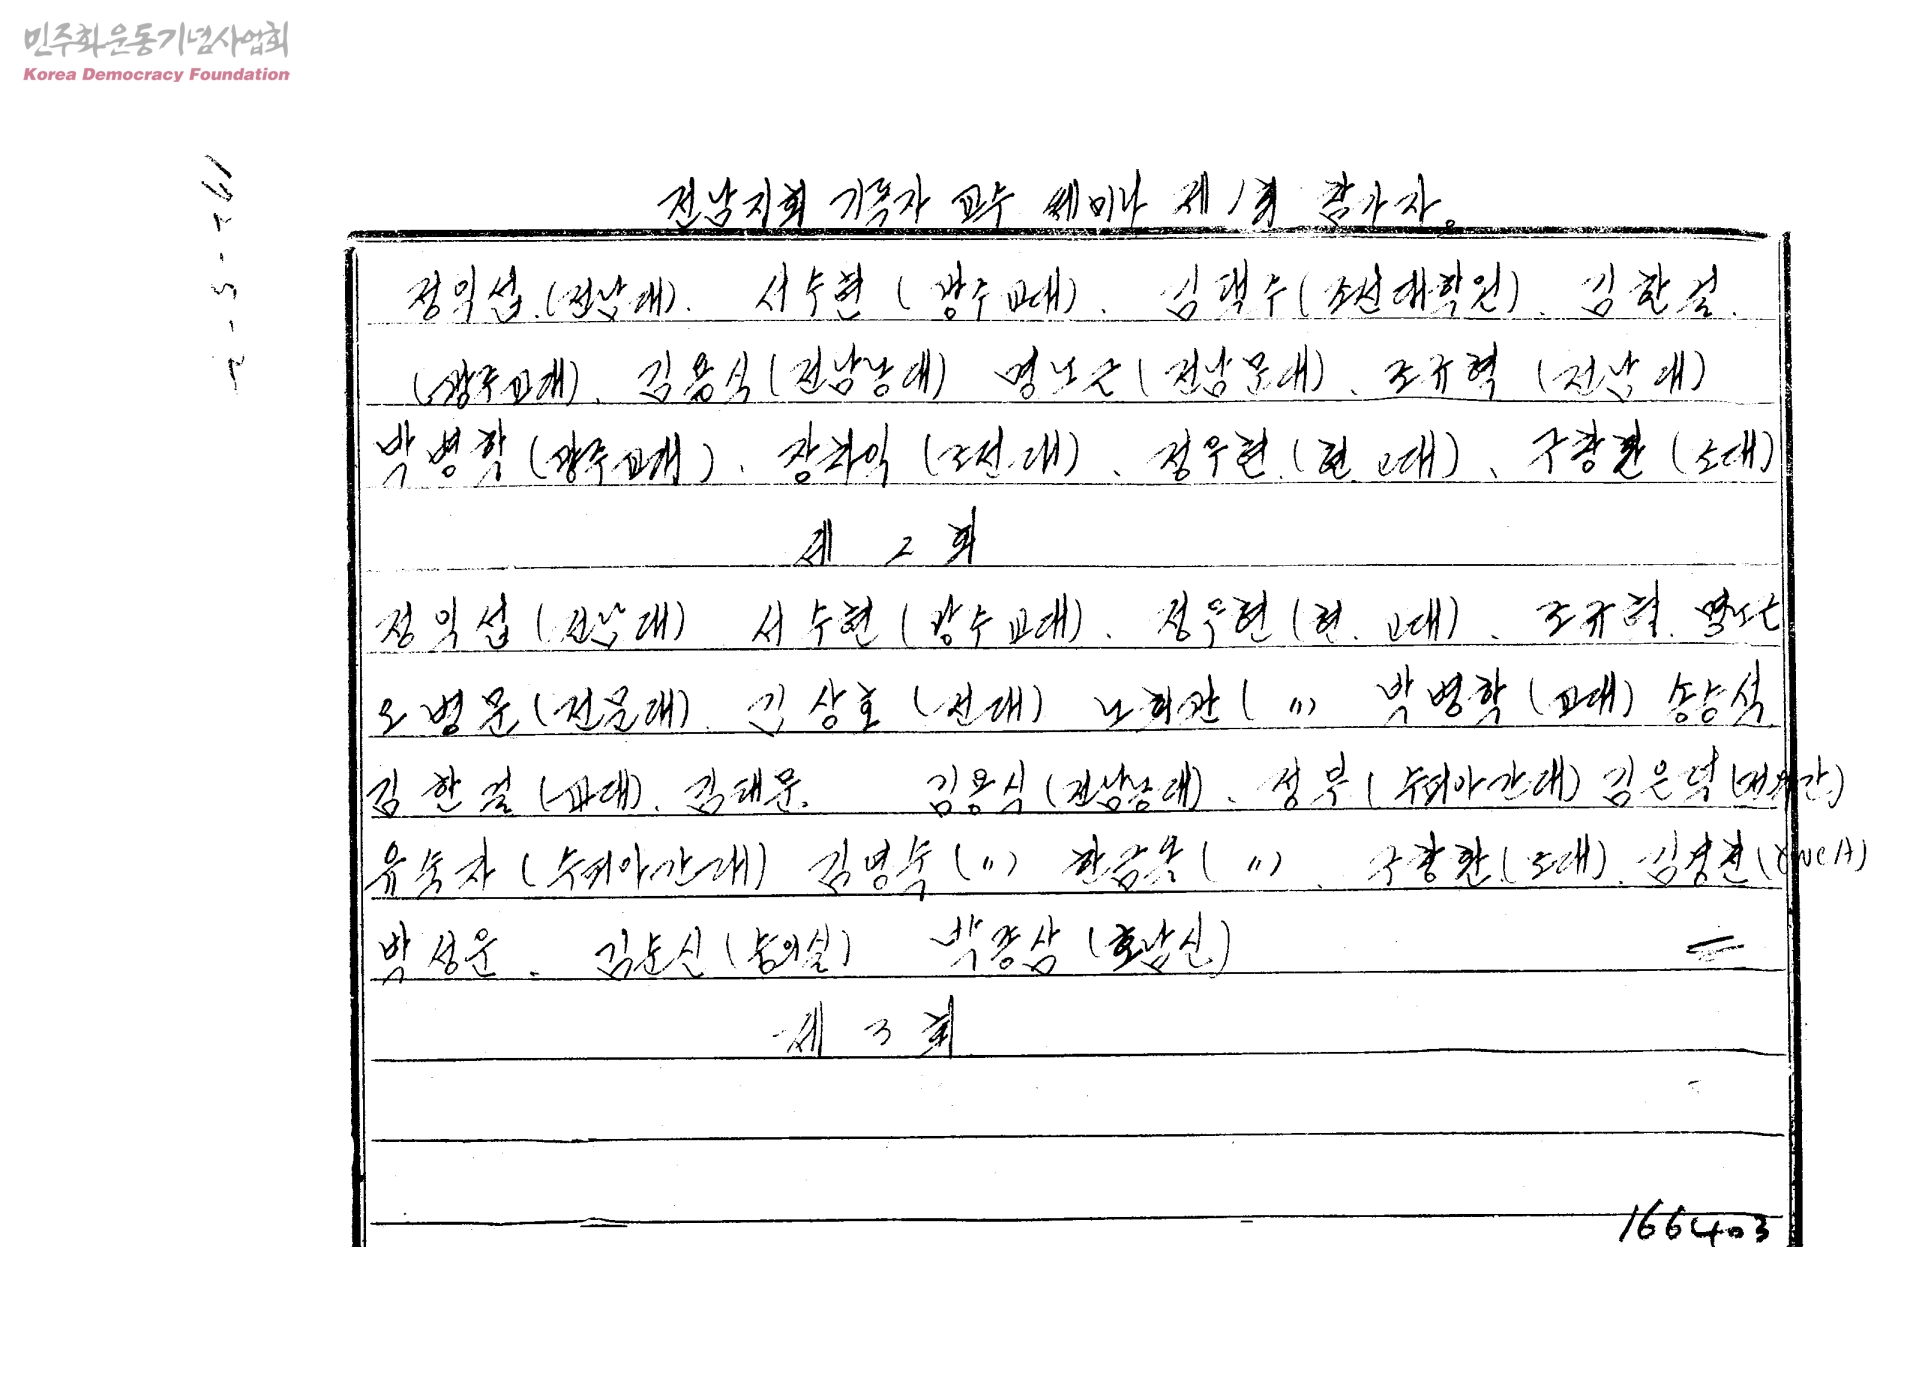 민주화운동기념사업회
Korea Democracy Foundation
전남지회 기독자 교수 세미나 제1회 참가자.
정익섭.(전남대). 서수현 (광주교대). 김택수(조선대학원). 김한걸.
(광주교대). 김용식(전남농대) 명노근(전남문대). 조규혁 (전남대)
박병학(광주교대). 장하익 (조선대). 정우현.(현.고대). 구창환 (조대)
제 2 회
정익섭(전남대) 서수현(광주교대). 정우현(현.고대). 조규혁. 명노근
오병문(전문대). 김상호(전대) 노희관( 〃 ) 박병학(교대) 송상석
김한걸(교대). 김태문. 김용식(전남농대). 성부(수피아간대) 김은덕
유숙자(수피아간대) 김명숙( 〃 ) 한금옥( 〃 ). 구창환.(조대). 김경천(YWCA)
박성운. 김순신 박종삼(호남신)
제 3 회
166403